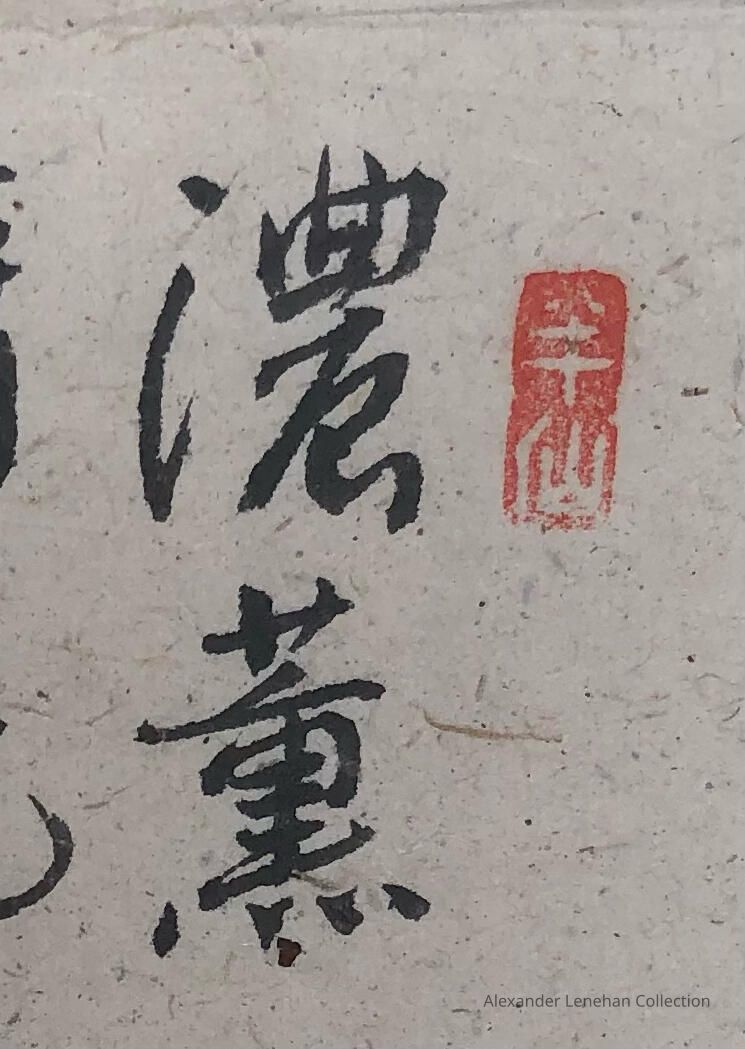 濃薰
Alexander Lenehan Collection